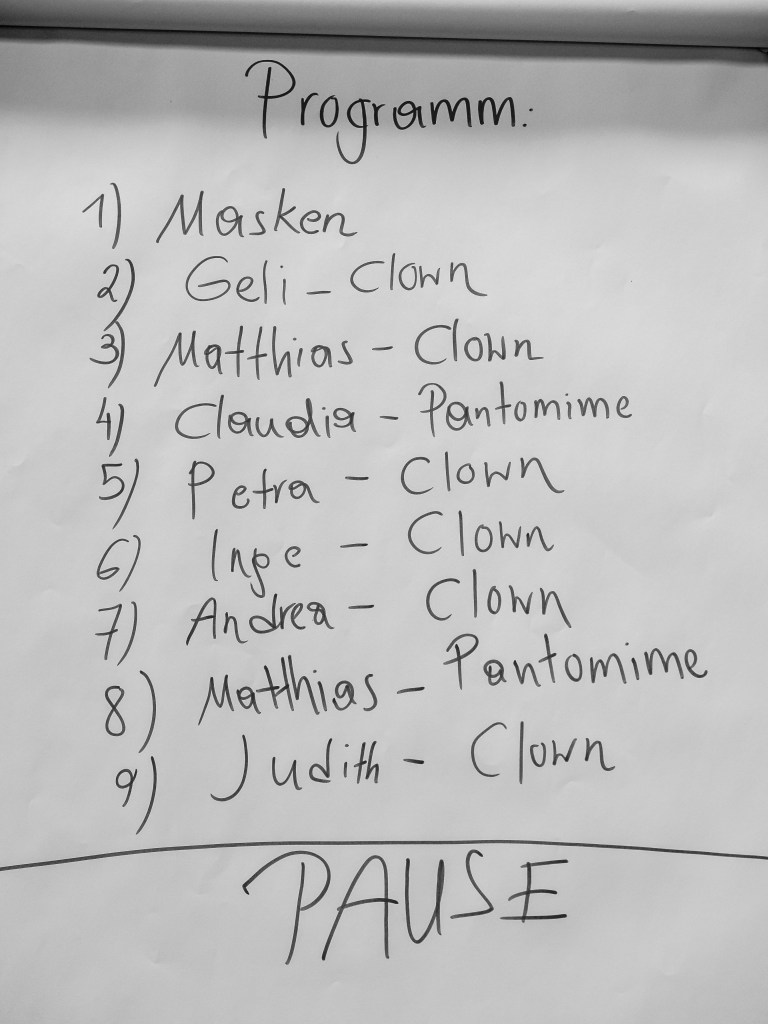 Programm:
1) Masken
2) Geli - Clown
3) Matthias - Clown
4) Claudia - Pantomime
5) Petra - Clown
6) Inge - Clown
7) Andrea - Clown
8) Matthias - Pantomime
9) Judith - Clown
PAUSE